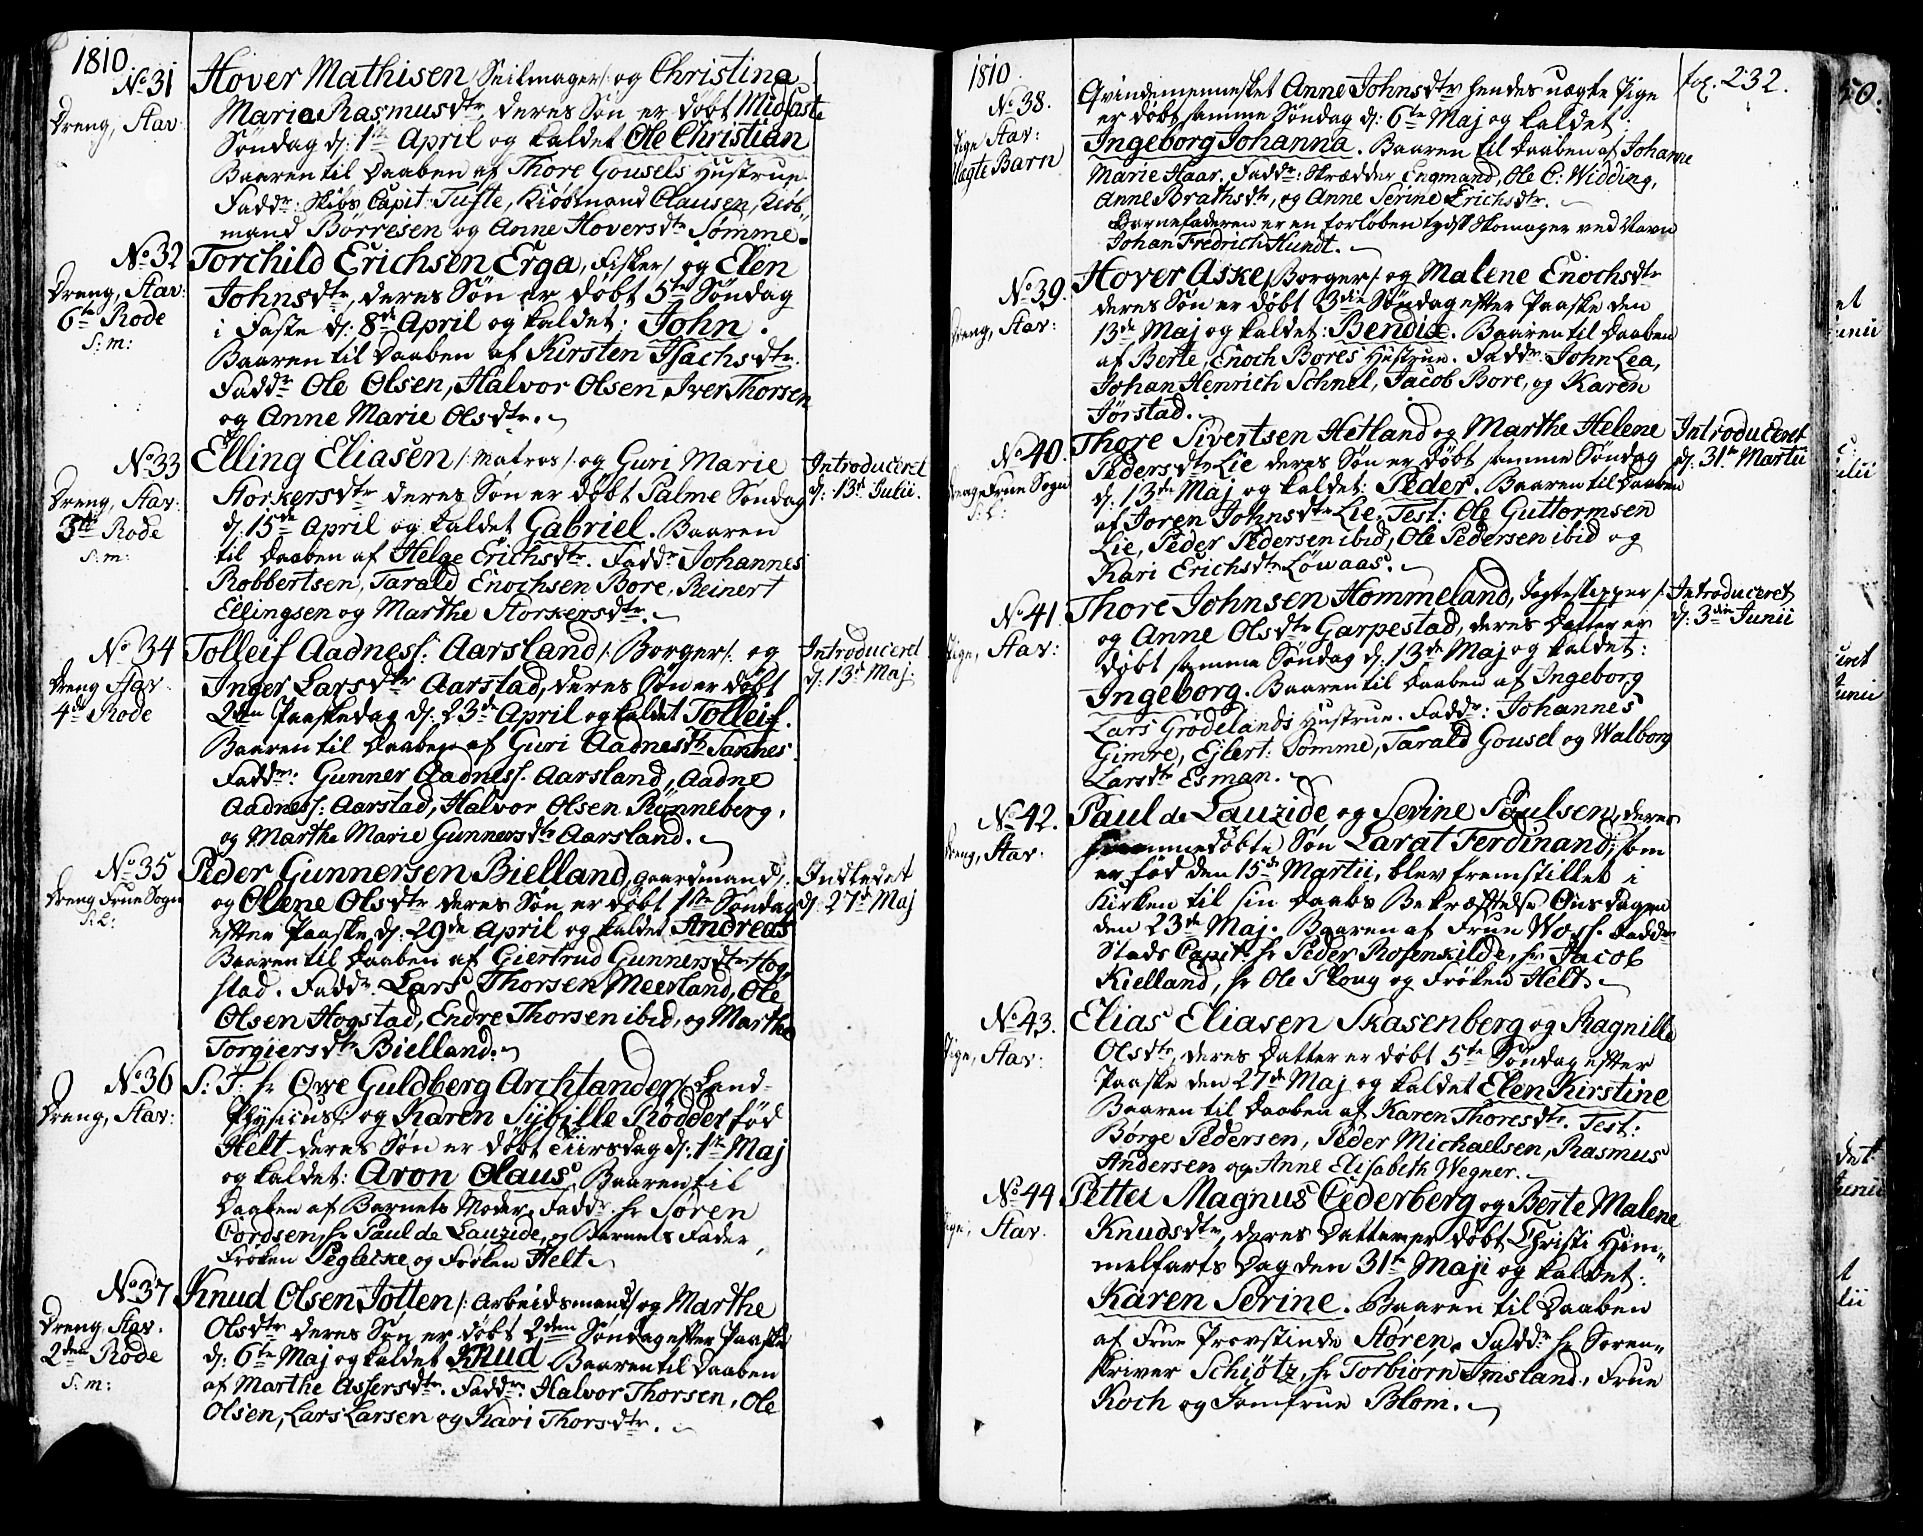 1810.
No 31
Dreng, Stav:
Hover Mathisen /: Seilmager /: og Christina
Maria Rasmusdtr, deres Søn er døbt Midfaste
Søndag d: 1ste April og kaldet Ole Christian
Baaren til Daaben af Thore Gousels Hustrue
Faddr: Skibs Capit: Tufte, Kiøbmand Clausen, Kiøb-
mand Börresen og Anne Hoversdtr Sømme.
No 32
Dreng, Stav:
6te Rode
S: m:
Torchild Erichsen Erga, Fisker /: og Elen
Johnsdtr, deres Søn er døbt 5te Søndag
i Faste d: 8de April og kaldet: John.
Baaren til Daaben af Kirsten Isachsdtr.
Faddr Ole Olsen, Halvor Olsen, Iver Thorsen
og Anne Marie Olsdtr.
No 33
Dreng, Stav:
3die Rode
S: m:
Elling Eliasen /: Matros /: og Guri Marie
Storkersdtr deres Søn er døbt Palme Søndag
d: 15de April og kaldet Gabriel. Baaren
til Daaben af Helge Erichsdtr. Faddr Johannes
Robbertsen, Tarald Enochsen Bore, Reinert
Ellingsen og Marthe Storkersdtr.
Introduceret
d: 13de Julii.
No 34
Dreng Stav.
4de Rode
Tolleif Aadness: Aarsland /: Borger /: og
Inger Larsdtr Aarstad, deres Søn er døbt
2den Paaskedag d: 23de April og kaldet Tolleif.
Baaren til Daaben af Guri Aadnesdtr Sannes
Faddr: Gunner Aadness: Aarsland, Aadne
Aadness: Aarstad, Halvor Olsen Rønneberg,
og Marthe Marie Gunnersdtr Aarsland.
Introduceret
d: 13de Maj.
No 35
Dreng Frue Sogn
S: L:
Peder Gunnersen Bielland, Gaardmand /:
og Olene Olsdtr deres Søn er døbt 1ste Søndag
efter Paaske d: 29de April og kaldet Andreas
Baaren til Daaben af Giertrud Gunnersdtr Hog-
stad. Faddr. Lars Thorsen Meesland, Ole
Olsen Hogstad, Endre Thorsen ibid, og Marthe
Torgiersdtr Bielland.
Indledet
d: 27de Maj
No 36
Dreng, Stav:
S: T: hr Owe Guldberg Archtander /: Land-
Physicus /: og Karen Sybille Rödder fød
Helt deres Søn er døbt Tiirsdag d: 1ste Maj
og kaldet: Aron Olaus. Baaren til
Daaben af Barnets Moder, Faddr. hr Sören
Cordsen, hr Paul de Lauzide, og Barnets Fader,
Frøken Peglecke og Frøken Helt.
No 37
Dreng, Stav.
2den Rode
S: m:
Knud Olsen Jotten /: Arbeidsmand /: og Marthe
Olsdtr deres Søn er døbt 2den Søndag efter Paaske
d: 6te Maj og kaldet Knud Baaren til Daaben
af Marthe Assersdtr. Faddr: Halvor Thorsen, Ole
Olsen, Lars Larsen og Kari Thorsdtr.
1810
fol. 232.
No 38.
Pige Stav:
Uægte Barn
Qvindemennesket Anne Johnsdtr hendes uægte Pige
er døbt samme Søndag d: 6te Maj og kaldet
Ingeborg Johanna. Baaren til Daaben af Johanne
Marie Haar. Faddr: Skrædder Engmand, Ole C: Widding,
Anne Brathsdtr, og Anne Serine Erichsdtr.
Barnefaderen er en forløben tydsk Skomager ved Navn
Johan Fredrich Hundt.
No 39.
Dreng, Stav:
Hover Aske /: Borger /: og Malene Enochsdtr
deres Søn er døbt 3die Søndag efter Paaske den
13de Maj og kaldet: Bendix. Baaren til Daaben
af Berte, Enoch Bores Hustrue. Faddr. John Lea,
Johan Henrich Schnel, Jacob Bore, og Karen
Jörstad.
No 40.
Dreng Frue Sogn
S: L:
Thore Sivertsen Hetland og Marthe Helene
Pedersdtr Lie deres Søn er døbt samme Søndag
d: 13de Maj og kaldet: Peder. Baaren til Daaben
af Joren Johnsdtr Lie. Test: Ole Guttormsen
Lie, Peder Pedersen ibid, Ole Pedersen ibid og
Kari Erichsdtr Löwaas.
Introduceret
d: 31te Martii
No 41
Pige, Stav:
Thore Johnsen Hommeland, Jagteskipper /:
og Anne Olsdtr Garpestad, deres Datter er
døbt samme Søndag d: 13de Maj og kaldet:
Ingeborg. Baaren til Daaben af Ingeborg
Lars Grödelands Hustrue. Faddr: Johannes
Gimre, Ejlert Sømme, Tarald Gousel og Walborg
Larsdtr Esman.
Introduceret
d: 3die Junii
No 42.
Dreng, Stav.
Paul de Lauzide og Sevine Poulsen, deres
hiemmedøbte Søn Larat Ferdinand, som
er fød den 15de Martii, blev fremstillet i
Kirken til sin Daabs Bekræftelse Onsdagen
den 23de Maj. Baaren af Frue Woss. Faddr
Stads Capit: hr Peder Rosenkilde, hr Jacob
Kielland, hr Ole Ploug og Frøken Helt.
No 43.
Pige, Stav:
Elias Eliasen Skasenberg og Ragnille
Olsdtr, deres Datter er døbt 5te Søndag efter
Paaske den 27de Maj og kaldet Elen Kirstine
Baaren til Daaben af Karen Thoresdtr. Test:
Børge Pedersen, Peder Michaelsen, Rasmus
Andersen og Anne Elisabeth Wegner.
No 44
Pige, Stav.
Petter Magnus Cederberg og Berte Malene
Knudsdtr, deres Datter er døbt Christi Him-
melfarts Dag den 31te Maji og kaldet:
Karen Serine. Baaren til Daaben
af Frue Provstinde Støren. Faddr hr Soren-
skriver Schiötz, hr Torbiørn Imsland, Frue
Koch og Jomfrue Blom.